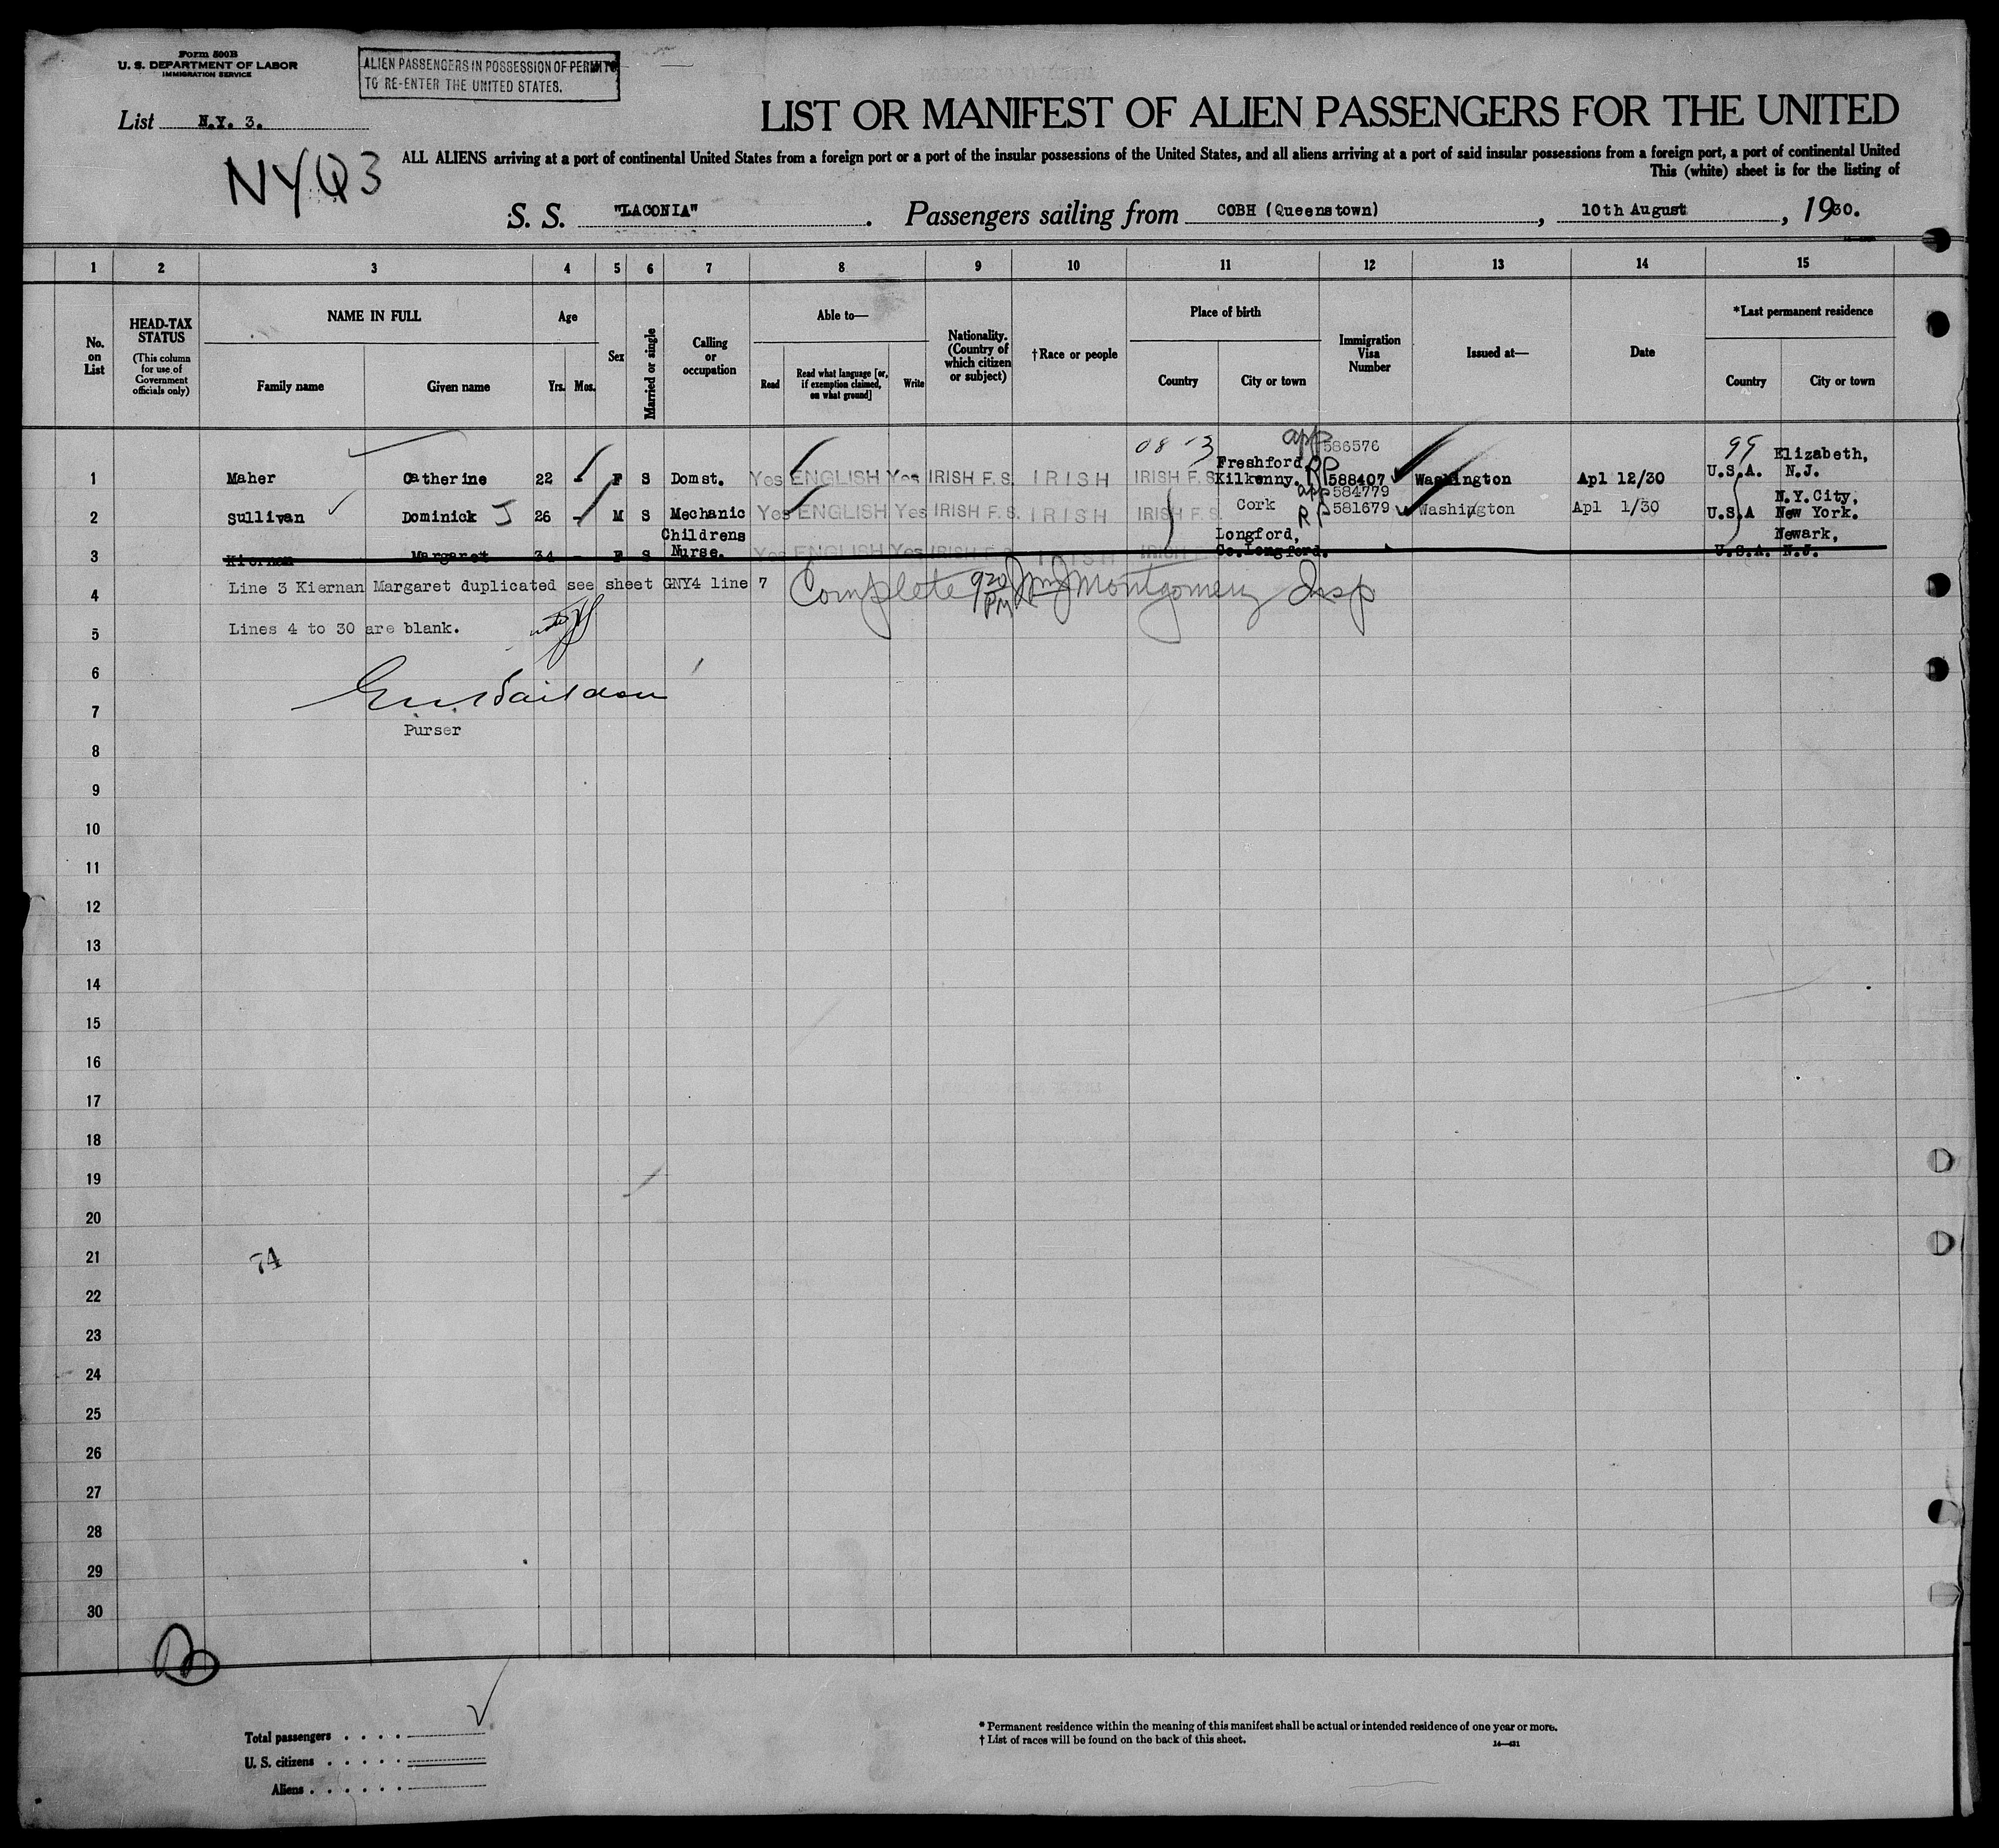 Form 500B
U. S. DEPARTMENT OF LABOR
IMMIGRATION SERVICE
ALIEN PASSENGERS IN POSSESSION OF PERMITS
TO RE-ENTER THE UNITED STATES.
List N.Y. 3.
NYQ3
LIST OR MANIFEST OF ALIEN PASSENGERS FOR THE UNITED
ALL ALIENS arriving at a port of continental United States from a foreign port or a port of the insular possessions of the United States, and all aliens arriving at a port of said insular possessions from a foreign port, a port of continental United
This (white) sheet is for the listing of
S. S. "LACONIA". Passengers sailing from COBH (Queenstown), 10th August, 1930.
1 2 3 4 5 6 7 8 9 10 11 12 13 14 15
No. on List
HEAD-TAX STATUS
(This column for use of Government officials only)
NAME IN FULL
Family name
Given name
Age
Yrs. Mos.
Sex
Married or single
Calling or occupation
Able to—
Read
Read what language [or, if exemption claimed, on what ground]
Write
Nationality. (Country of which citizen or subject)
†Race or people
Place of birth
Country
City or town
Immigration Visa Number
Issued at—
Date
*Last permanent residence
Country
City or town
08 13 app 586576 99
1 Maher Catherine 22 - F S Domst. Yes ENGLISH Yes IRISH F.S. IRISH IRISH F.S. Freshford, Kilkenny. RP 588407 Washington Apl 12/30 U.S.A. Elizabeth, N.J.
app 584779
2 Sullivan Dominick J 26 - M S Mechanic Yes ENGLISH Yes IRISH F.S. IRISH IRISH F.S. Cork RP 581679 Washington Apl 1/30 U.S.A N.Y.City, New York.
3 Kiernan Margaret 34 - F S Childrens Nurse. Yes ENGLISH Yes IRISH F.S. IRISH IRISH F.S. Longford, Co.Longford. U.S.A. Newark, N.J.
4 Line 3 Kiernan Margaret duplicated see sheet GNY4 line 7 Complete 920 PM Montgomery Insp
5 Lines 4 to 30 are blank.
6
7
Purser
8
9
10
11
12
13
14
15
16
17
18
19
20
21
74
22
23
24
25
26
27
28
29
30
Total passengers
U. S. citizens
Aliens
* Permanent residence within the meaning of this manifest shall be actual or intended residence of one year or more.
† List of races will be found on the back of this sheet.